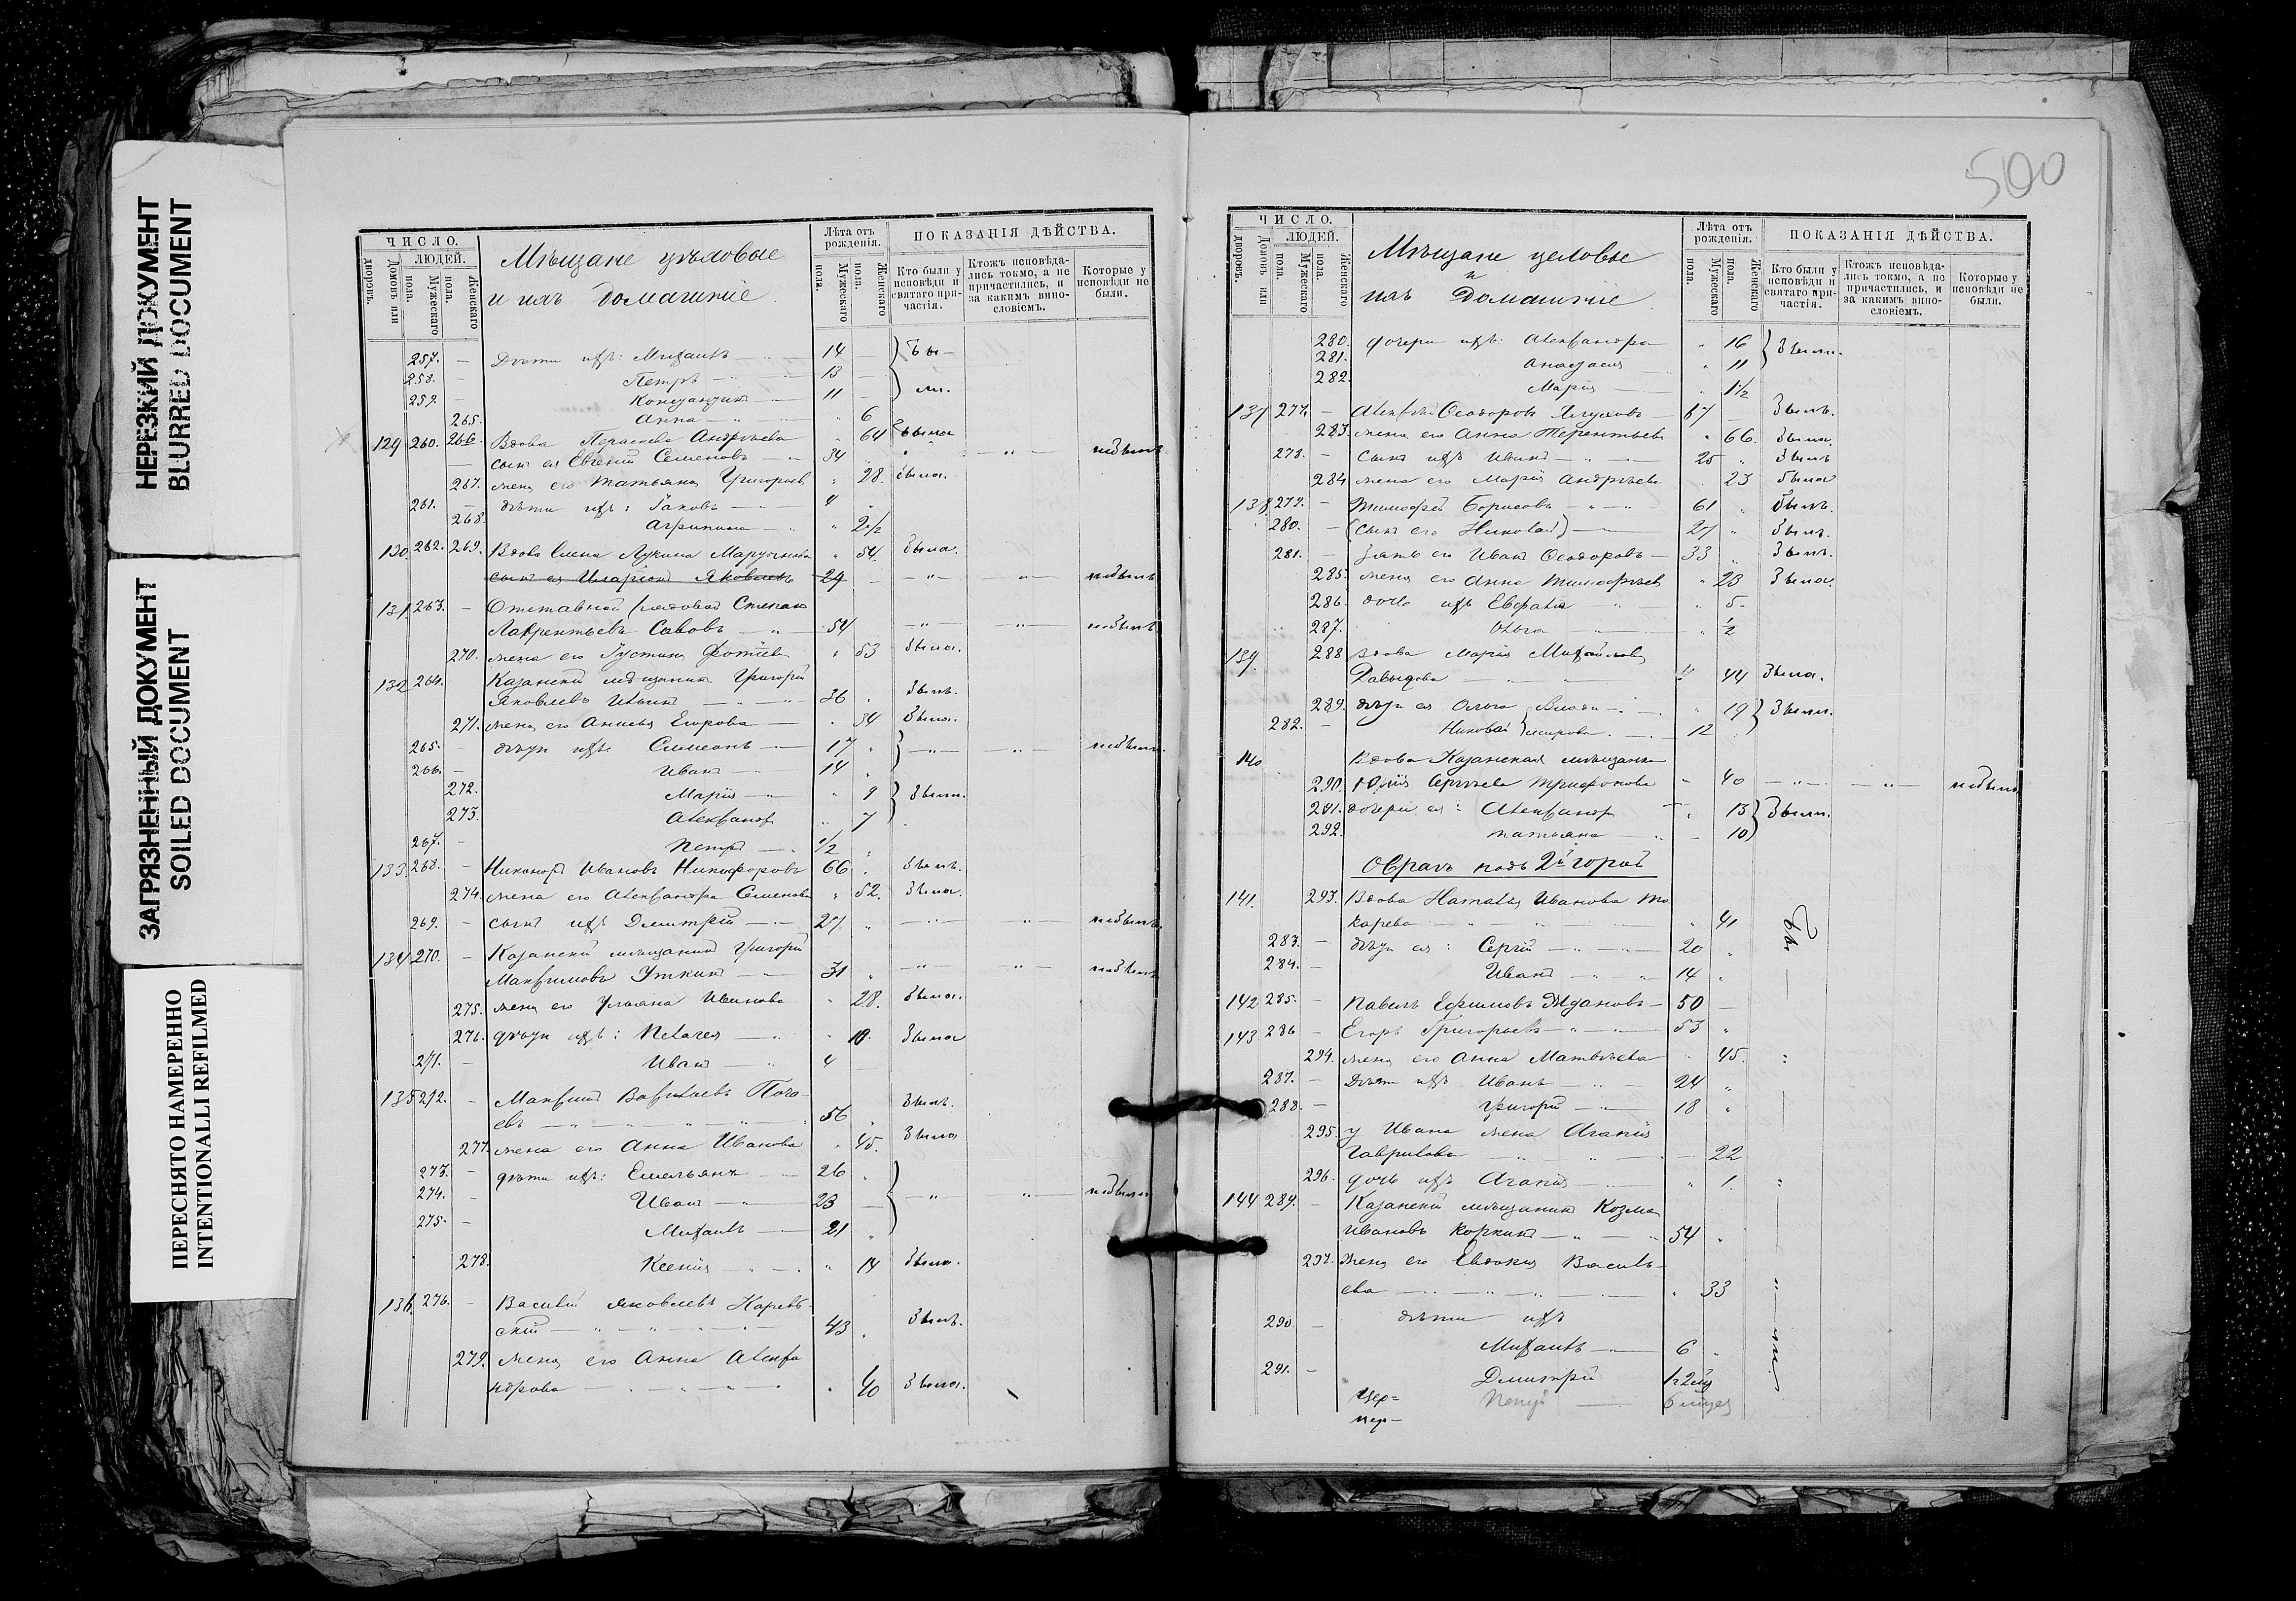 НЕРЕЗКИЙ ДОКУМЕНТ
BLURRED DOCUMENT
ЗАГРЯЗНЕННЫЙ ДОКУМЕНТ
SOILED DOCUMENT
ПЕРЕСНЯТО НАМЕРЕННО
INTENTIONALLI REFILMED
ЧИСЛО.
ЛЮДЕЙ.
Домовъ или дворовъ.
Мужескаго пола.
Женскаго пола.
Мѣщане
и ихъ домашніе
Лѣта отъ рожденія.
Мужескаго пола.
Женскаго пола.
ПОКАЗАНІЯ ДѢЙСТВА.
Кто были у исповѣди и святаго причастія.
Ктожъ исповѣдались токмо, а не причастились, и за какимъ винословіемъ.
Которые у исповѣди не были.
257. — Дѣти ихъ: Михаилъ — 14 — } бы-
258. — Петръ — 13
259. — Константинъ — 11 — } ли.
265. Анна — 6
129 260. 266. Вдова Параскева Андрѣева " 64 была
сынъ ея Евгеній Семеновъ — 34 небылъ
267. жена его Татьяна Григорьев " 28. была.
261. — дѣти ихъ: Іаковъ — 4
268. Агрипина — " 2 1/2
130. 262. 269. Вдова Елена Лукина " 54. была.
сынъ ея Иларіонъ Яковлевъ 29 — небылъ
131. 263. — Отставной рядовой Степанъ
Лаврентьевъ Савовъ — 54 небылъ.
270. жена его Іустина Фотіева " 53 была.
132 264. Казанскій мѣщанинъ Григорій
Яковлевъ Ильинъ — 36 былъ.
271. жена его Анисья Егорова — " 34 была.
265. — дѣти ихъ Симеонъ — 17 " } небыли.
266. — Иванъ — 14 "
272. Марія — " 9 } были.
273. Александ " 7
267. — Петръ — 1/2
133. 268. — Никаноръ Ивановъ Никифоровъ 66 " былъ.
274. жена его Александра Семенова " 52. была.
269. — сынъ ихъ Димитрій — 27. " небылъ.
134 270. — Казанскій мѣщанинъ Григорій
Максимовъ Уткинъ — 31 " небылъ
275. жена его Ульяна Иванова " 28. была.
276. дѣти ихъ: Пелагея — " 10. была
271. — Иванъ — 4
135 272. — Максимъ
56 былъ.
277. жена его Анна Иванова " 45. была
273. — дѣти ихъ: Емельянъ — 26 " }
274. — Иванъ — 23 — небыли
275. — Михаилъ — 21 "
278. Ксенія — " 14 была.
136. 276. — Василій Яковлевъ
скій — 43 " былъ.
279. жена его Анна Алекса
ндрова — " 40 была.
500
ЧИСЛО.
ЛЮДЕЙ.
Домовъ или дворовъ.
Мужескаго пола.
Женскаго пола.
Мѣщане
и
ихъ домашніе
Лѣта отъ рожденія.
Мужескаго пола.
Женскаго пола.
ПОКАЗАНІЯ ДѢЙСТВА.
Кто были у исповѣди и святаго причастія.
Ктожъ исповѣдались токмо, а не причастились, и за какимъ винословіемъ.
Которые у исповѣди не были.
280. дочери ихъ: Александра " 16 } были.
281. Анастасія " 11
282. Марія — " 1 1/2
137 277. — Алексѣй Ѳеодоровъ — 67 — былъ.
283. жена его Анна Терентьева " 66. была.
278. — сынъ ихъ Иванъ — 25 " былъ
284 жена его Марія Андрѣева 23 была
138 279. — Тимофей Борисовъ — 61 " былъ.
280. — (сынъ его Николай) — 27 " былъ.
281. — зять его Иванъ Ѳеодоровъ — 33 былъ.
285. жена его Анна Тимофѣев " 23 была.
286. дочь ихъ — " 5-
287. Ольга " 1/2
139. 288 Вдова Марія Михайлова
Давыдова — " 44 была.
289. дѣти ея Ольга — " 19 } были.
282. — Николай 12
140 Вдова Казанская мѣщанка
290. Юлія Сергѣева Трифонова — 40 небыла
291. дочери ея: Александ " 13 } были.
292. Татьяна — 10
Оврагъ подъ 2й горой
141. 293. Вдова Наталья Иванова То
карева — " 41 бы
283. — дѣти ея: Сергій — 20 "
284. — Иванъ — 14 "
142 285. — Павелъ Ефимовъ Ждановъ — 50 —
143 286 — Егоръ Григорьевъ — 53 "
294. жена его Анна Матвѣева " 45.
287. — Дѣти ихъ Иванъ — 24 "
288. — Григорій — 18 "
295. у Ивана жена Агапія
Гаврилова — 22
296. дочь ихъ Агапія — " 1.
144 289. — Казанскій мѣщанинъ Козма
Ивановъ Коркинъ — 54 "
297. жена его Евдокія Василь-
ева — " 33
290. — дѣти ихъ
Михаилъ — 6 "
291. — Димитрій ли
Петръ —